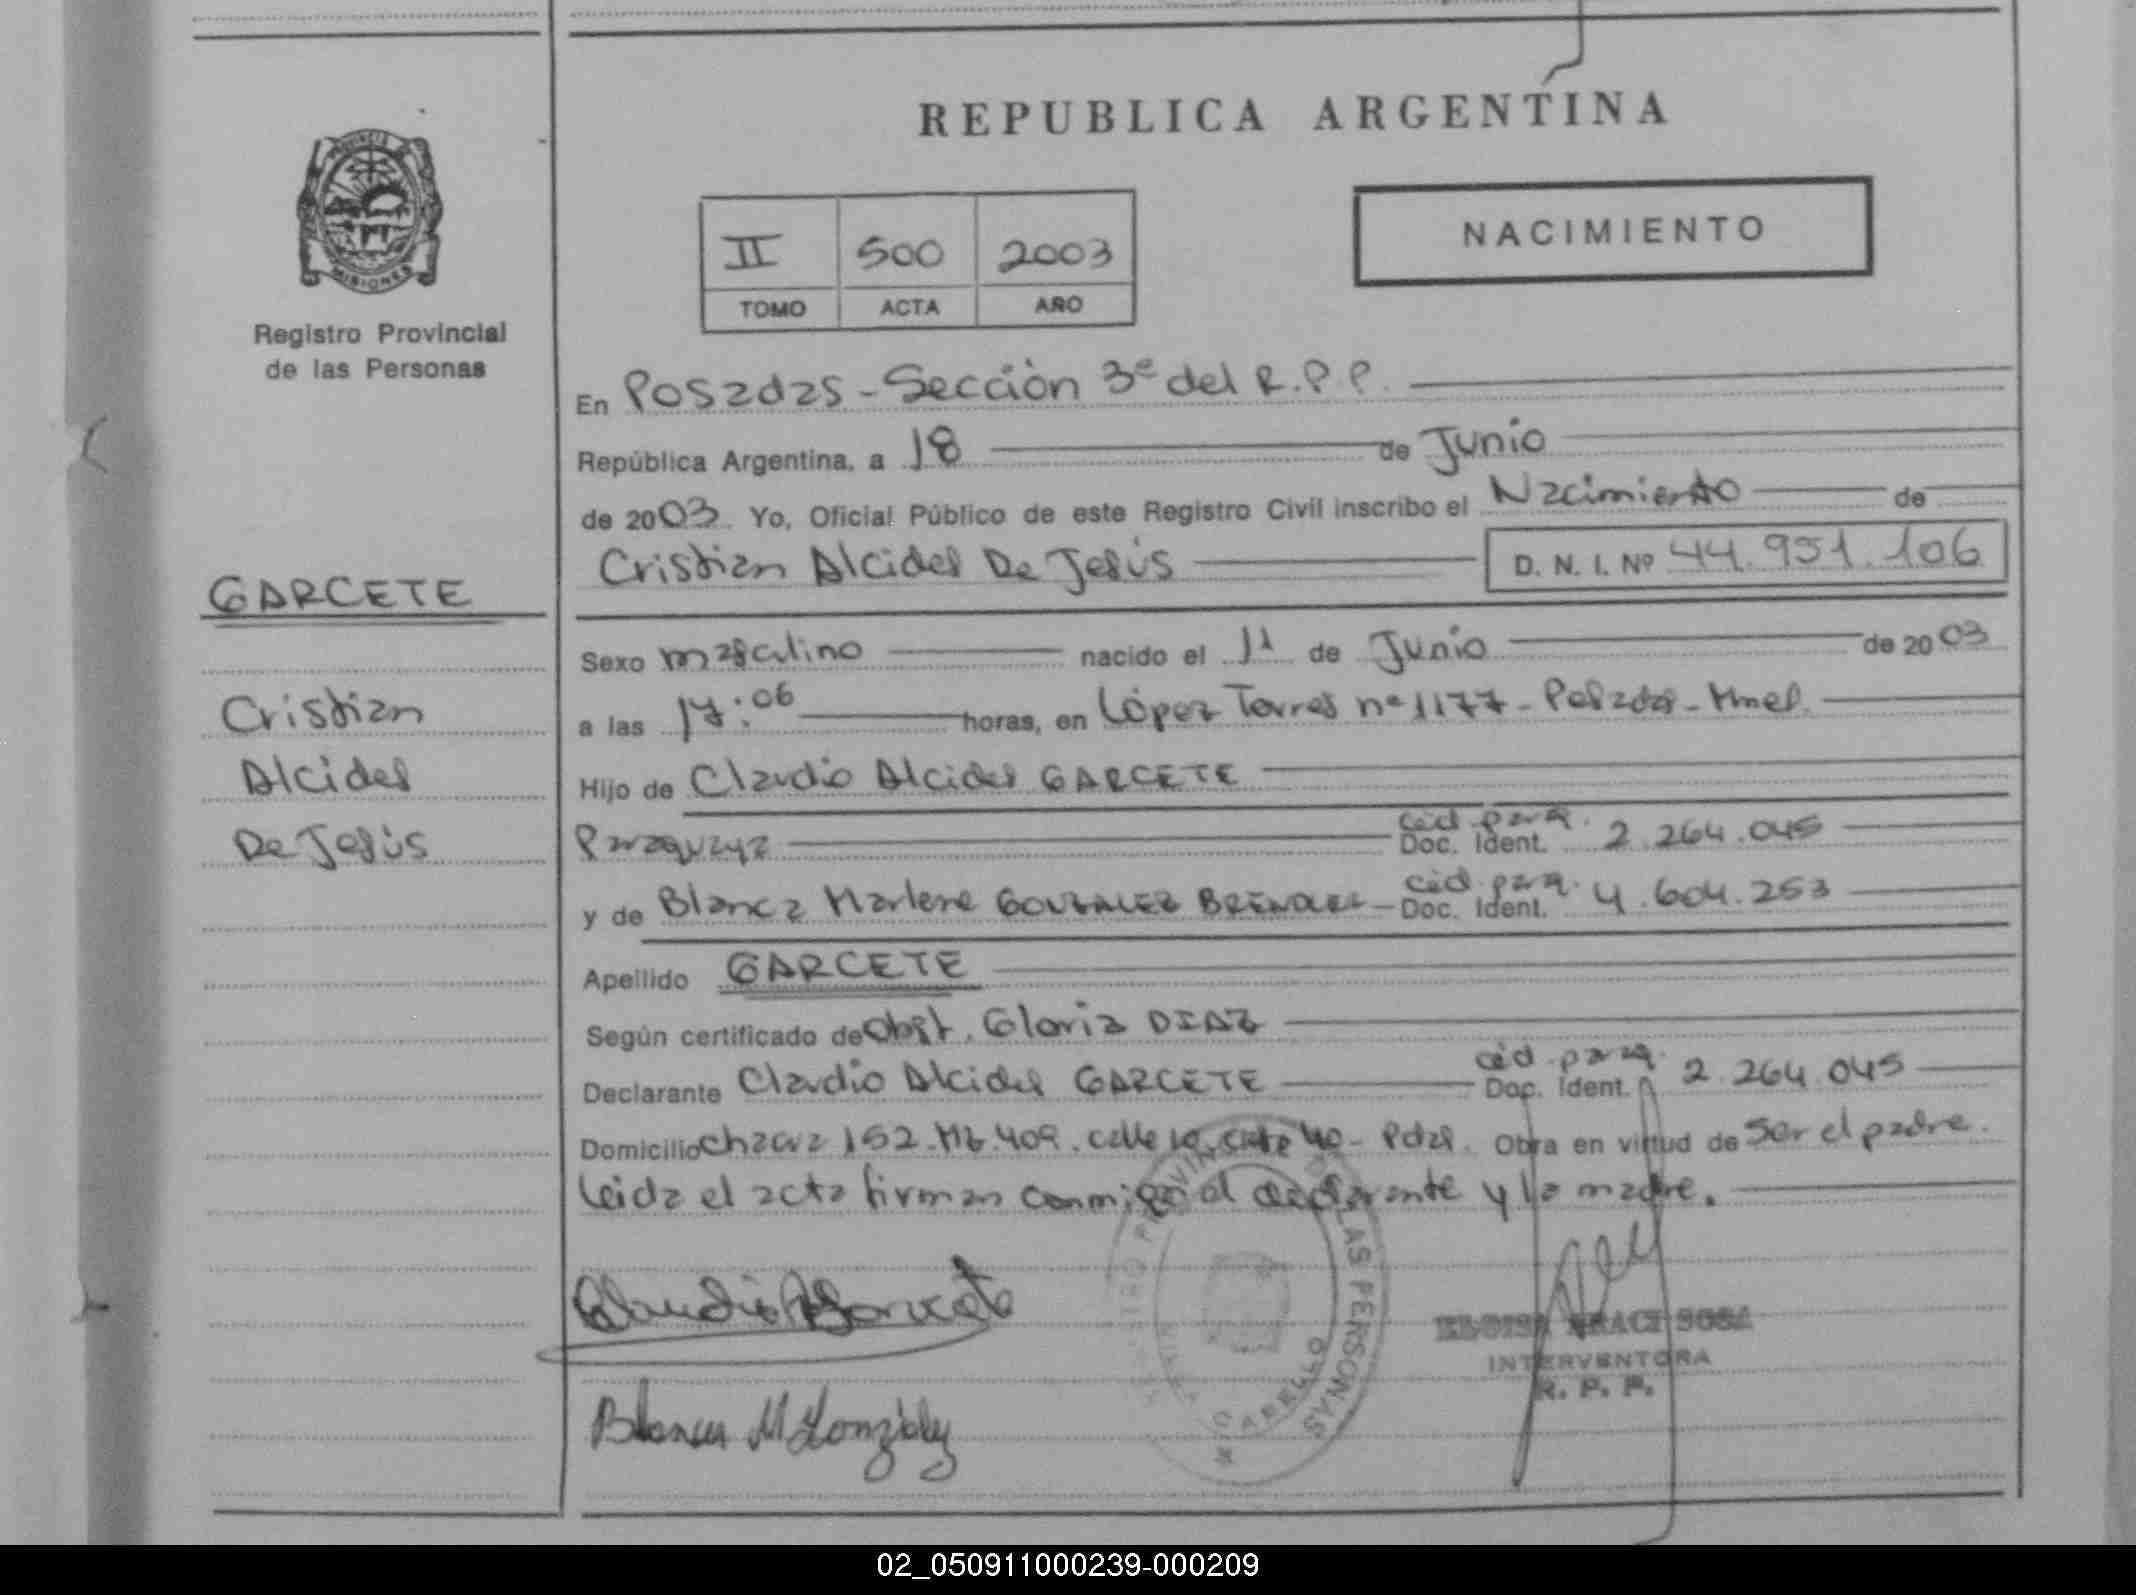 REPUBLICA ARGENTINA
PROVINCIA DE
MISIONES
Registro Provincial
de las Personas
II 500 2003
TOMO ACTA AÑO
NACIMIENTO
En Posadas - Sección 3ª del R.P.P.
República Argentina, a 18 de Junio
de 2003. Yo, Oficial Público de este Registro Civil inscribo el Nacimiento de
Cristian Alcides De Jesús D. N. I. Nº 44.951.106
GARCETE
Cristian
Alcides
De Jesús
Sexo masculino nacido el 11 de Junio de 2003
a las 17:06 horas, en López Torres nº 1177 - Posadas - Mnes.
Hijo de Claudio Alcides GARCETE
Paraguaya céd. parag. Doc. Ident. 2.264.045
y de Blanca Marlene GONZALEZ céd. parag. Doc. Ident. 4.604.253
Apellido GARCETE
Según certificado de Obst. Gloria DIAZ
Declarante Claudio Alcides GARCETE céd. parag. Doc. Ident. 2.264.045
Domicilio Chacra 152. Mb. 409. calle Pdas. Obra en virtud de ser el padre.
Leida el acta firman conmigo el declarante y la madre.
Claudio A Garcete
Blanca M Gonzalez
PROVINCIAL DE LAS PERSONAS
CABELLO
SOSA
INTERVENTORA
R. P. P.
02_050911000239-000209